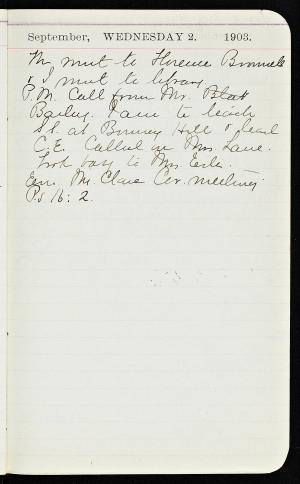 September, WEDNESDAY 2. 1903.
M went to Florence
& I went to library.
P.M. Call from Mr.
Bailey. I am to teach
S.S. at Hill & lead
C.E. Called on Mrs. Lane.
Took to Mrs.
Eve. Mr. Clare meeting
Ps 16: 2.